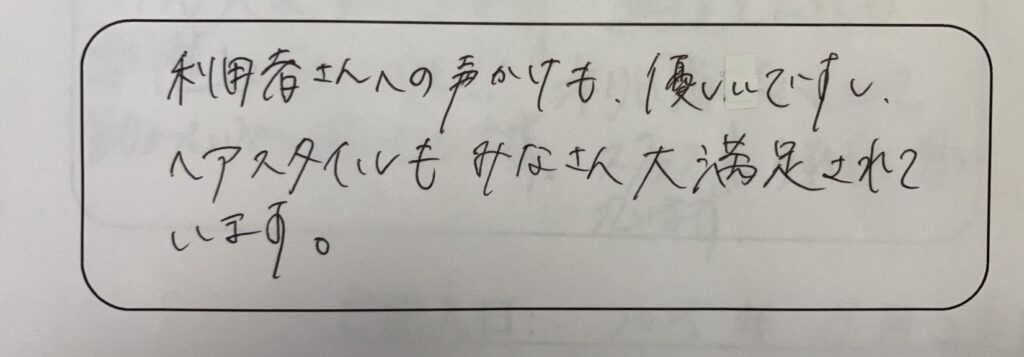 利用者さんへの声かけも、優しいですし、
ヘアスタイルも みなさん大満足されて
います。